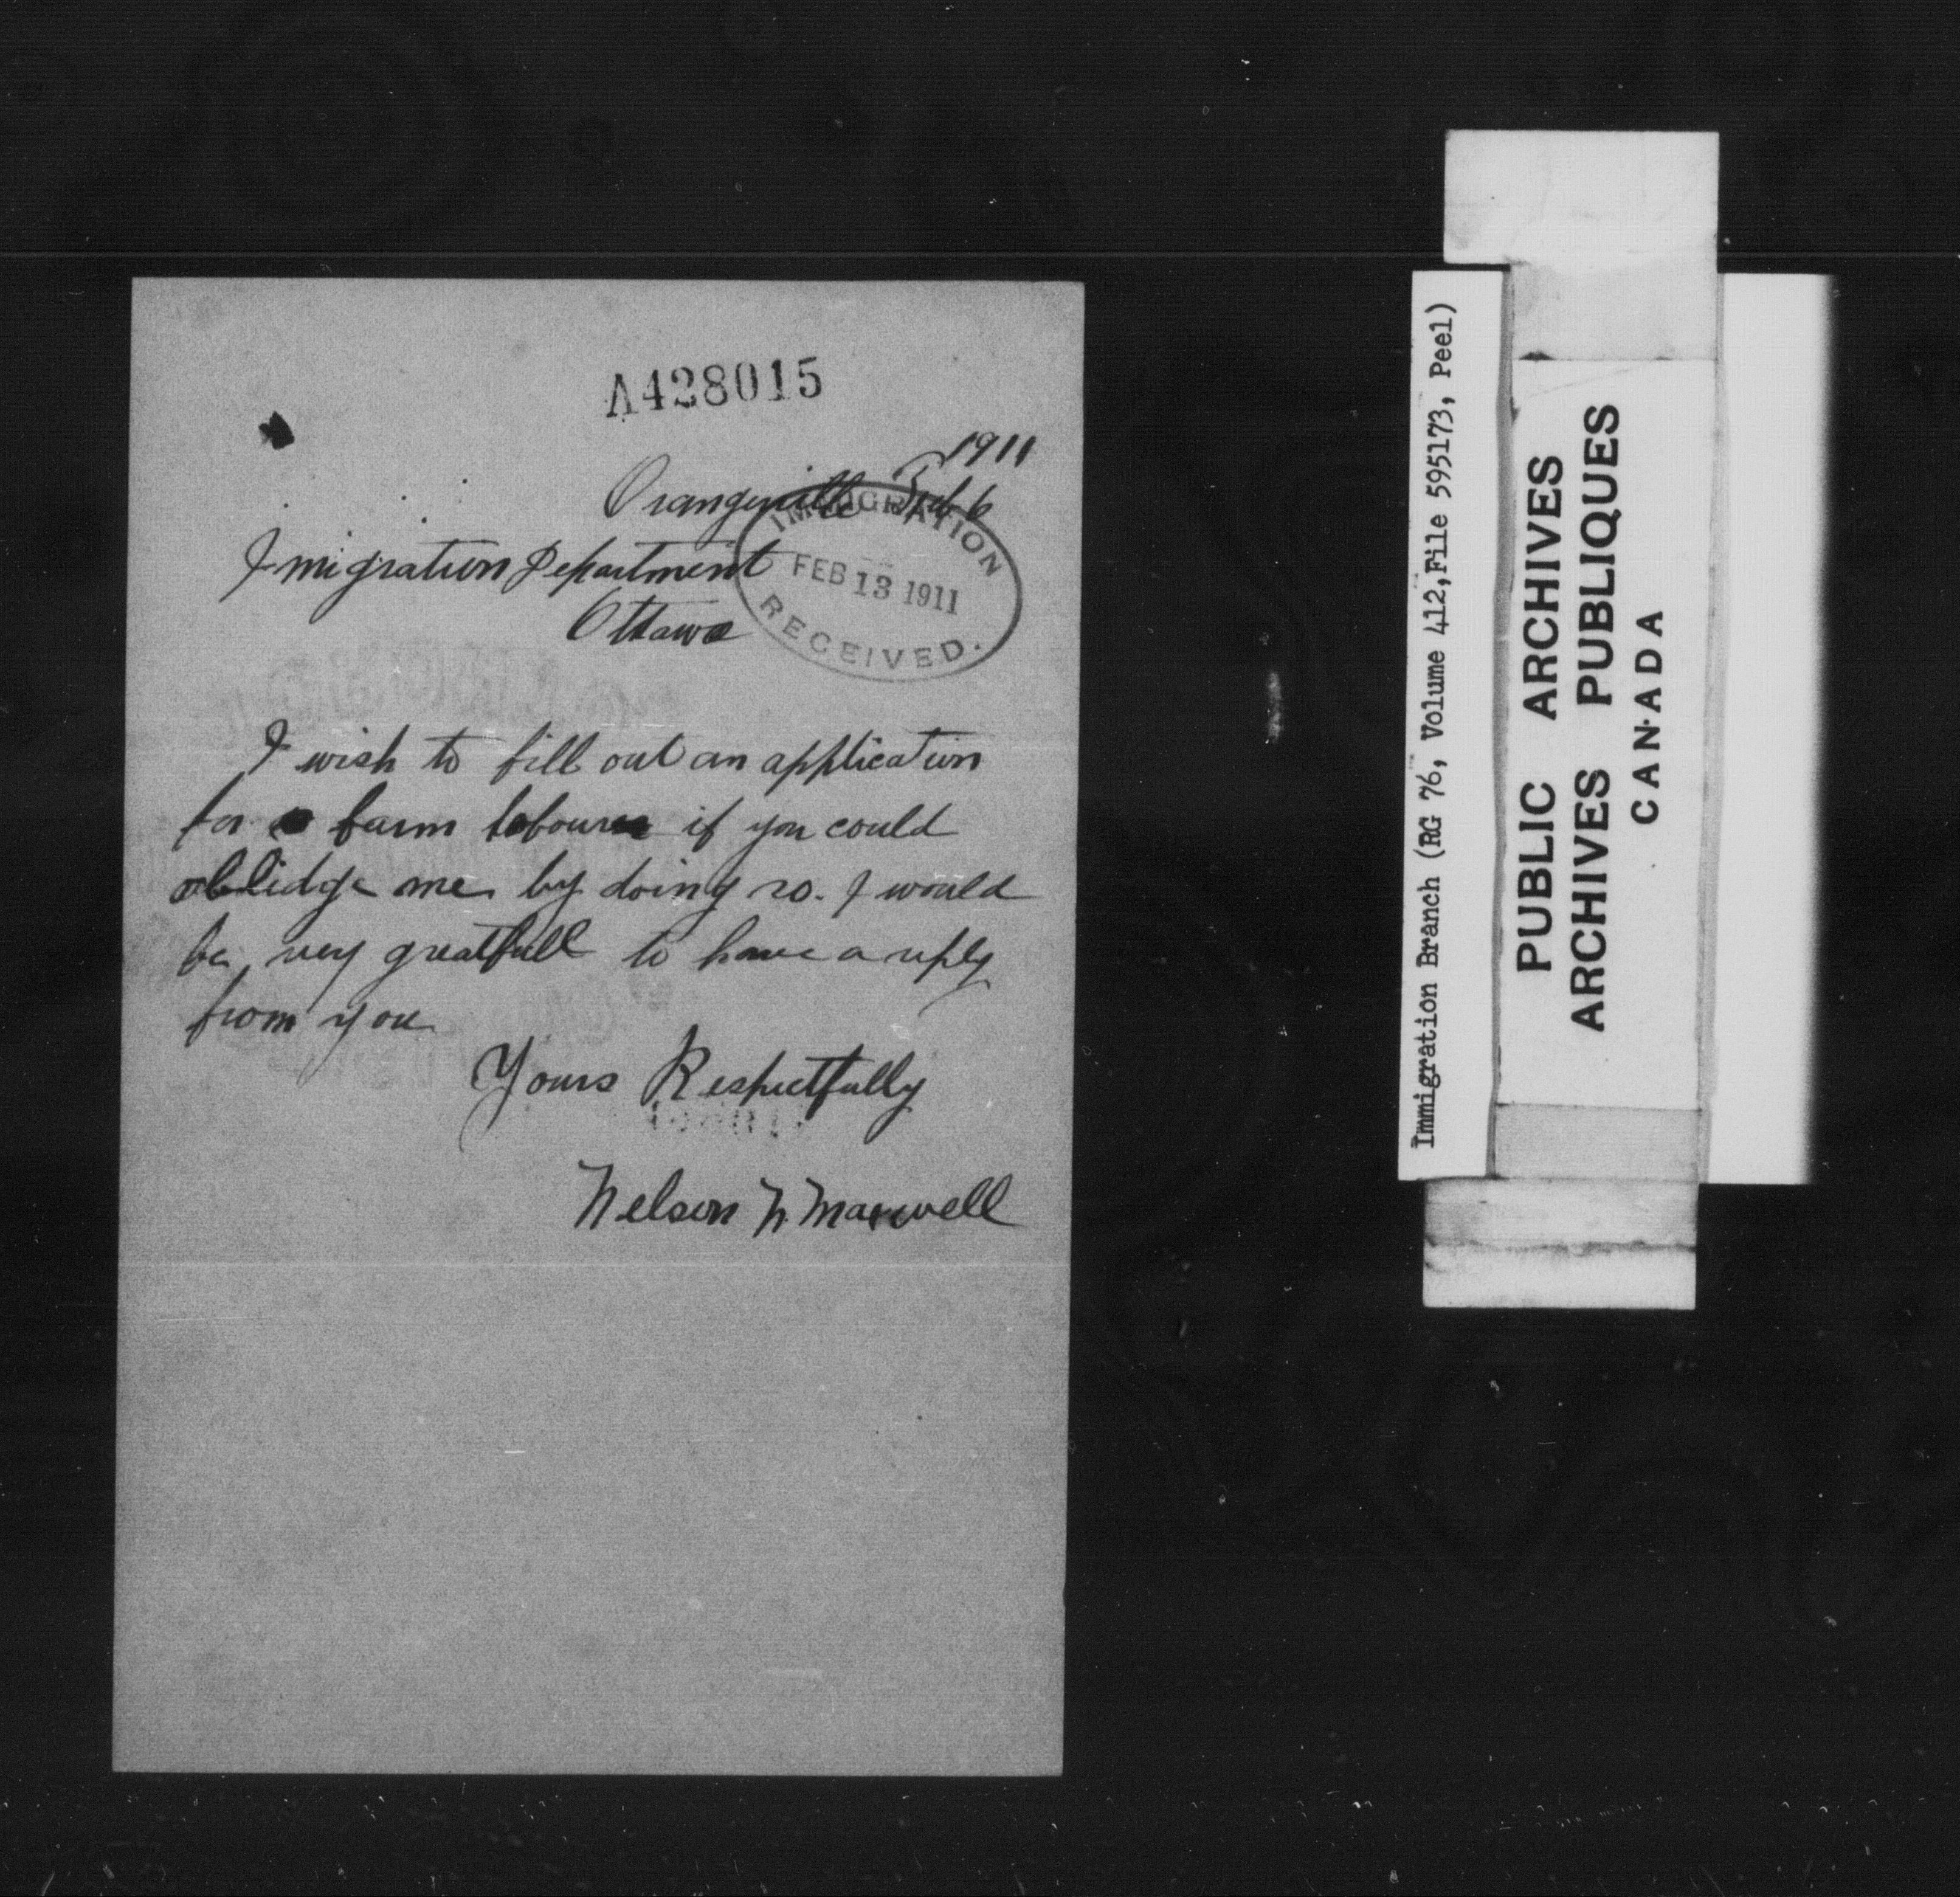 A428015
1911
Orangeville Feb 6
IMMIGRATION
FEB 13 1911
RECEIVED.
Imigration Department
Ottawa
I wish to fill out an application
for a farm labourer if you could
oblidge me by doing so. I would
be very greatfull to have a reply
from you
Yours Respectfully
Nelson N Maxwell
Immigration Branch (RG 76, Volume 412, File 595173, Peel)
PUBLIC ARCHIVES
ARCHIVES PUBLIQUES
CANADA